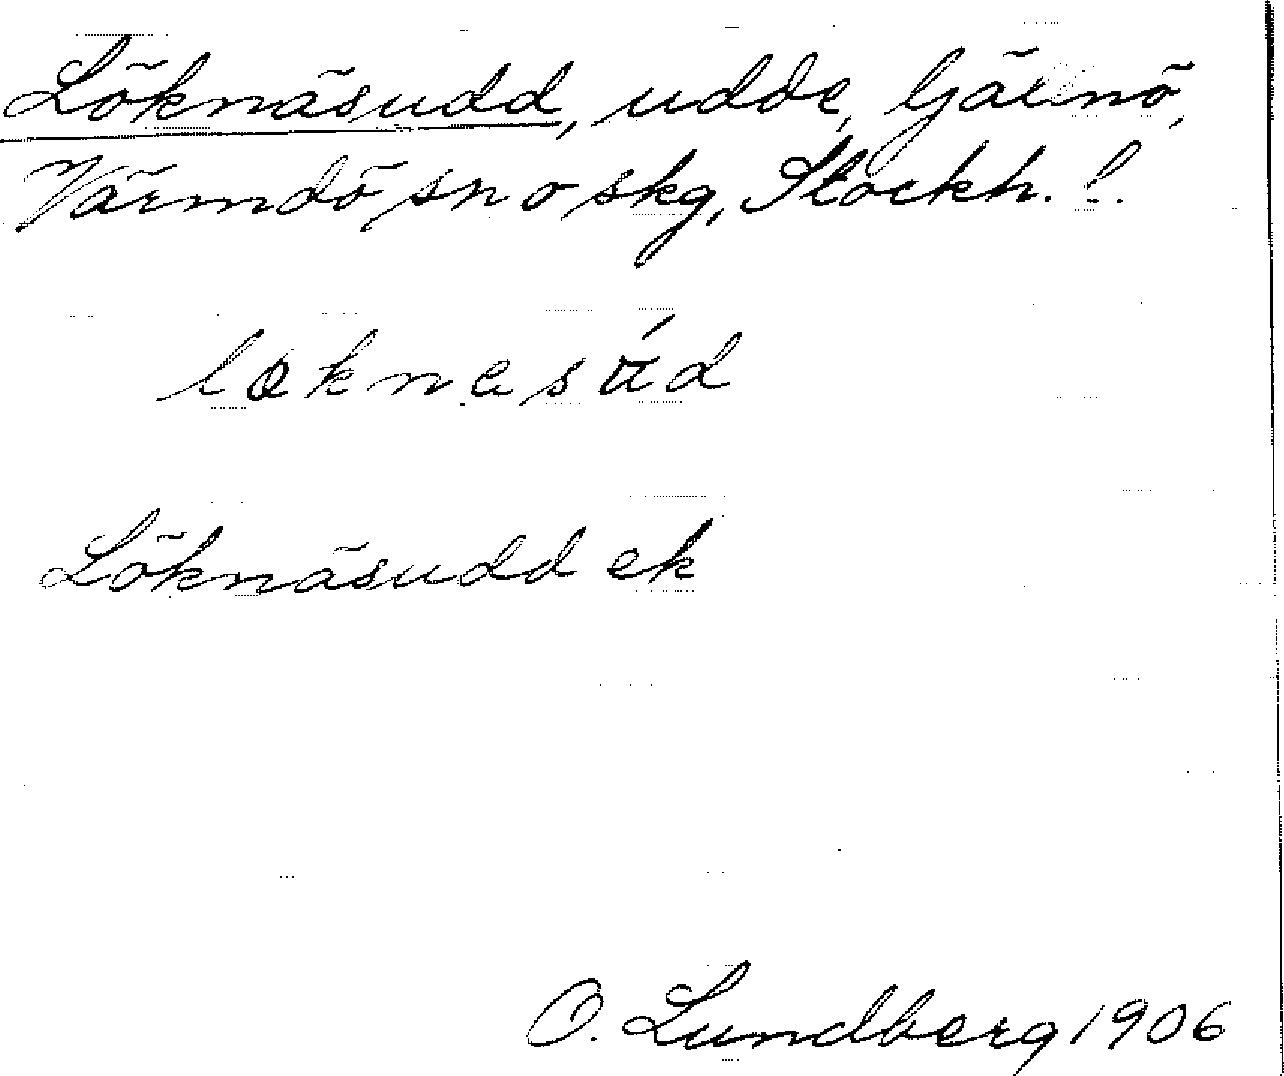 Löknäsudd, udde, Gällnö,
Värmdö sn o skg, Stockh. !.
Löknäsudd ek
O. Lundberg 1906